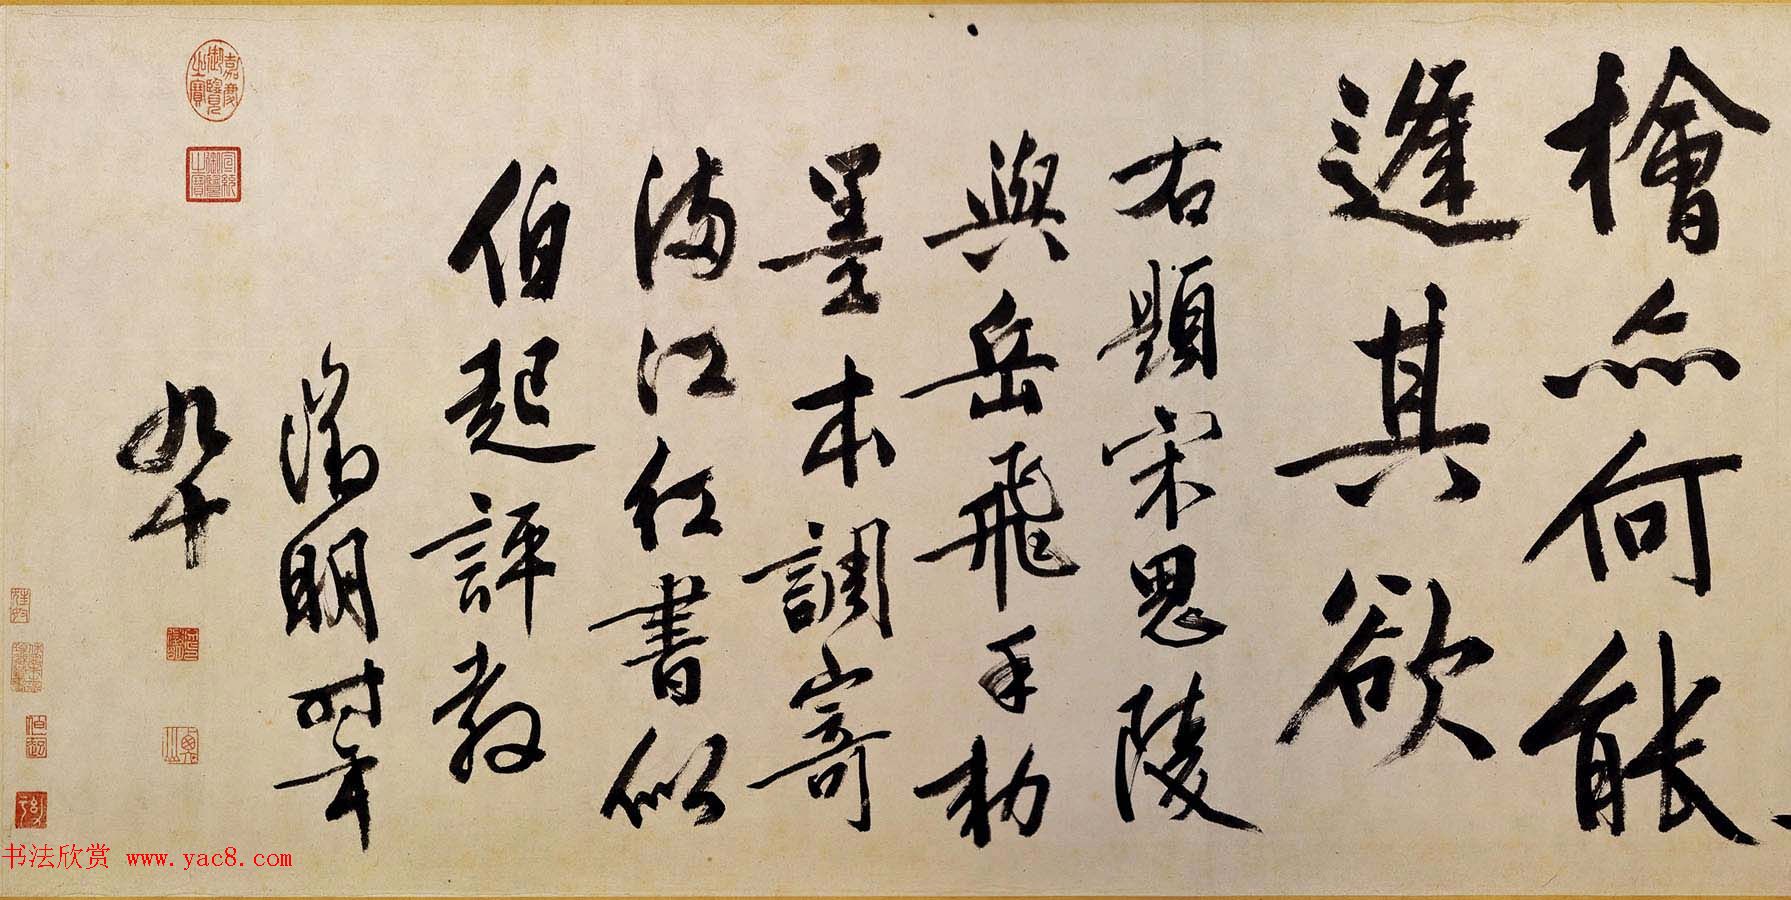 檜亦何能
逢其欲
右題宋思陵
與岳飛手勑
墨本調寄
滿江紅書似
伯起評教
徵明時年
九十
嘉慶御覽之寶
宣統御覽之寶
伯起
书法欣赏 www.yac8.com